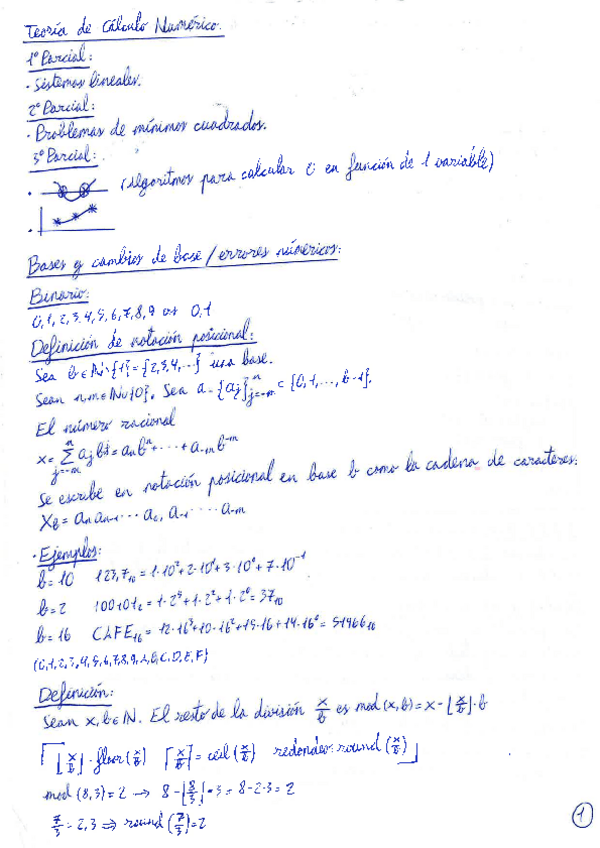 Teoría de Cálculo Numérico.
1º Parcial:
· Sistemas lineales.
2º Parcial:
· Problemas de mínimos cuadrados.
3º Parcial:
· (Algoritmos para calcular en función de 1 variable)
Bases y cambios de base / errores numéricos:
Binario:
0,1,2,3,4,5,6,7,8,9 0,1
Definición de notación posicional:
Sea b∈ℕ\{1} = {2,3,4,...} una base.
Sean n,m∈ℕ∪{0}. Sea a = {aj}ⁿj=-m ⊂ {0,1,...,b-1}.
El número racional
x = Σⁿj=-m aj bʲ = an bⁿ + ··· + a-m b⁻ᵐ
Se escribe en notación posicional en base b como la cadena de caracteres:
Xb = an an-1 ··· a0, a-1 ··· a-m
· Ejemplos:
b=10 123,7₁₀ = 1·10²+2·10¹+3·10⁰+7·10⁻¹
b=2 100101₂ = 1·2⁵+1·2²+1·2⁰ = 37₁₀
b=16 CAFE₁₆ = 12·16³+10·16²+15·16+14·16⁰ = 51966₁₀
(0,1,2,3,4,5,6,7,8,9,A,B,C,D,E,F)
Definición:
Sean x,b∈ℕ. El resto de la división x/b es mod(x,b) = x - ⌊x/b⌋·b
⌊x/b⌋ = floor(x/b) ⌈x/b⌉ = ceil(x/b) redondeo: round(x/b)
mod(8,3) = 2 → 8 - ⌊8/3⌋·3 = 8-2·3 = 2
7/3 = 2,3 ⇒ round(7/3) = 2
1